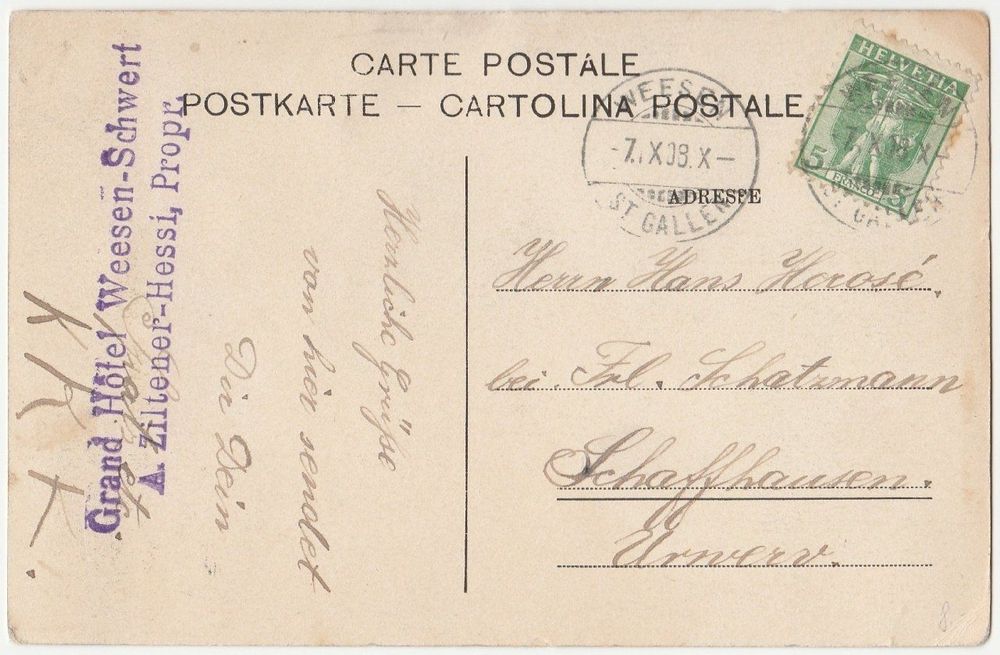 CARTE POSTALE
POSTKARTE — CARTOLINA POSTALE
Grand Hôtel Weesen-Schwert
A. Ziltener-Hessi, Propr.
WEESEN
-7.X.08.X-
ST GALLEN
HELVETIA
5 FRANCO 5
WEESEN
7.X.08.X
ADRESSE
Herzliche Grüße
von hier sendet
Dir Dein
Herrn Hans Herosé,
bei Frl. Schatzmann
Schaffhausen.